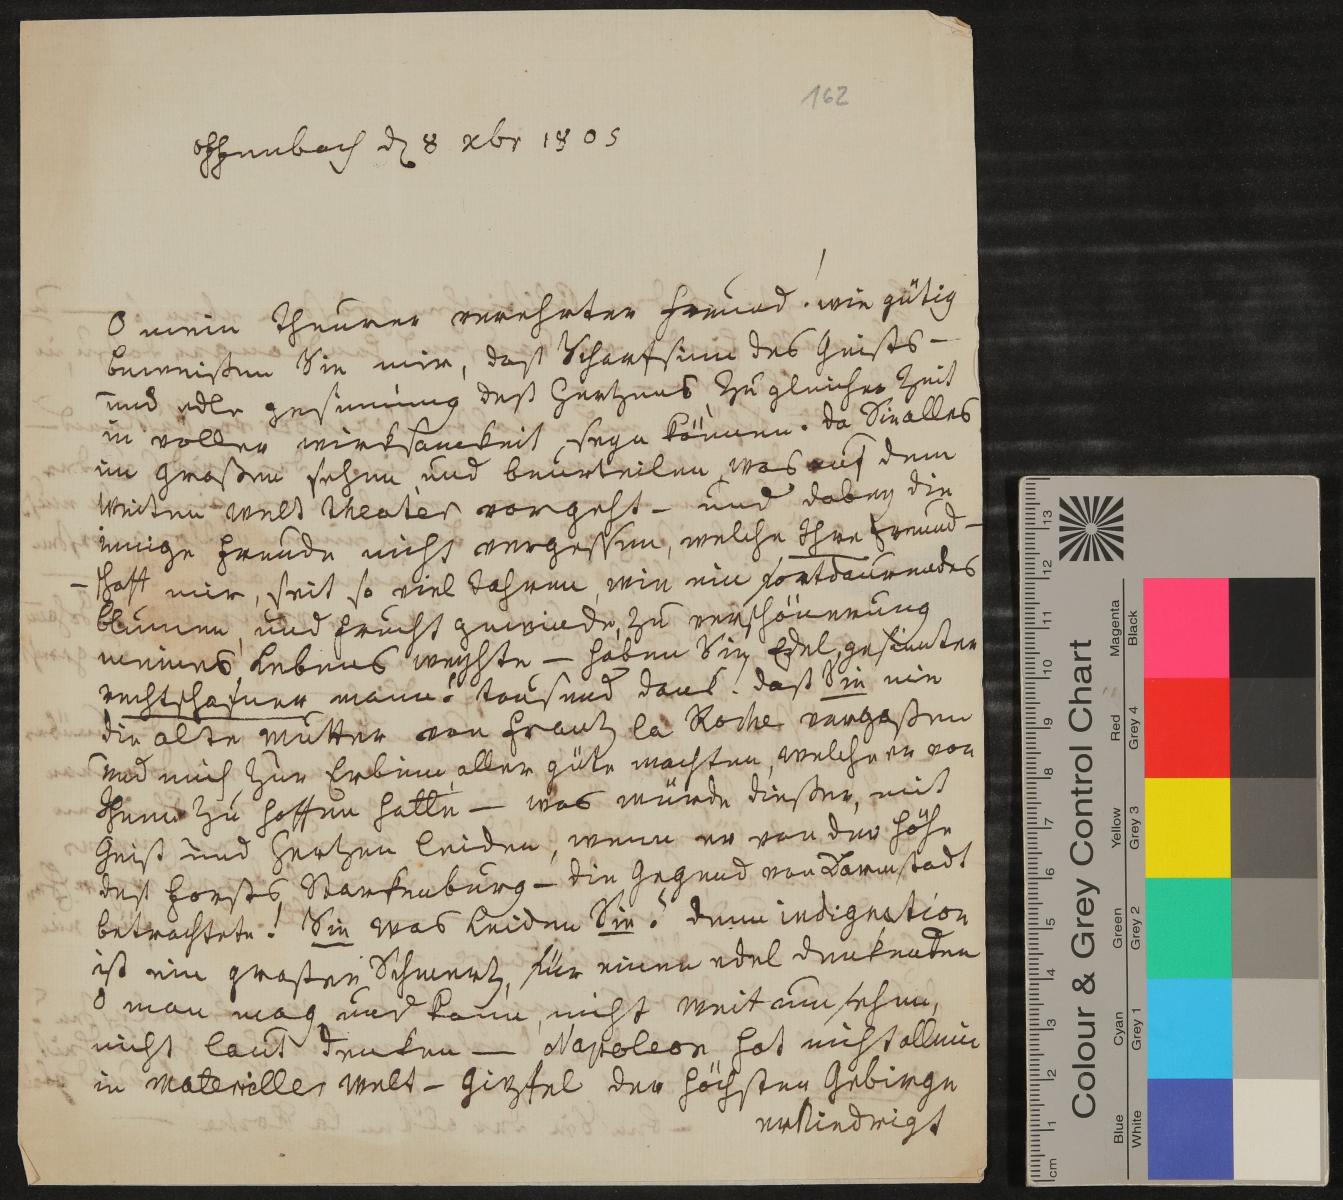 162
offenbach d 8 xbr 1805
O mein Theurer verehrter Freund! wie gütig
beweißen Sie mir, daß Scharfsinn des Geists –
und edle gesinnung deß Hertzens, zu gleicher Zeit
in voller wirksamkeit seyn können. da Sie alles
im großen sehen, und beurteilen, was auf dem
weiten welt theater vorgeht – und dabey die
innige Freude nicht vergessen, welche Ihre Freund–
–schaft mir, seit so viel Jahren, wie ein fortdaurendes
blumen, und frucht gewinde, zu verschönerung
meines Lebens weyhte – haben Sie, Edel, gesinnter
rechtschafner mann! tausend danck! daß Sie nie
die alte Mutter von Frantz la Roche vergaßen
und mich, zur Erbin, aller güte machten, welche er von
Ihnen zu hoffen hatte – was würde dießer, mit
Geist und Hertzen leiden, wenn er von der höhe
deß Forsts, Starkenburg – die Gegend von Darmstadt
betrachtete! Sie was Leiden Sie! denn indignation
ist ein großer Schmertz, für einen edel denkenden
O man mag, und kann, nicht weit um sehen,
nicht laut denken – Napoleon, hat nicht allein
in materieller welt – Gipfel der höchsten Gebirge
erniedrigt
Colour & Grey Control Chart
Blue Cyan Green Yellow Red Magenta
White Grey 1 Grey 2 Grey 3 Grey 4 Black
cm 1 2 3 4 5 6 7 8 9 10 11 12 13